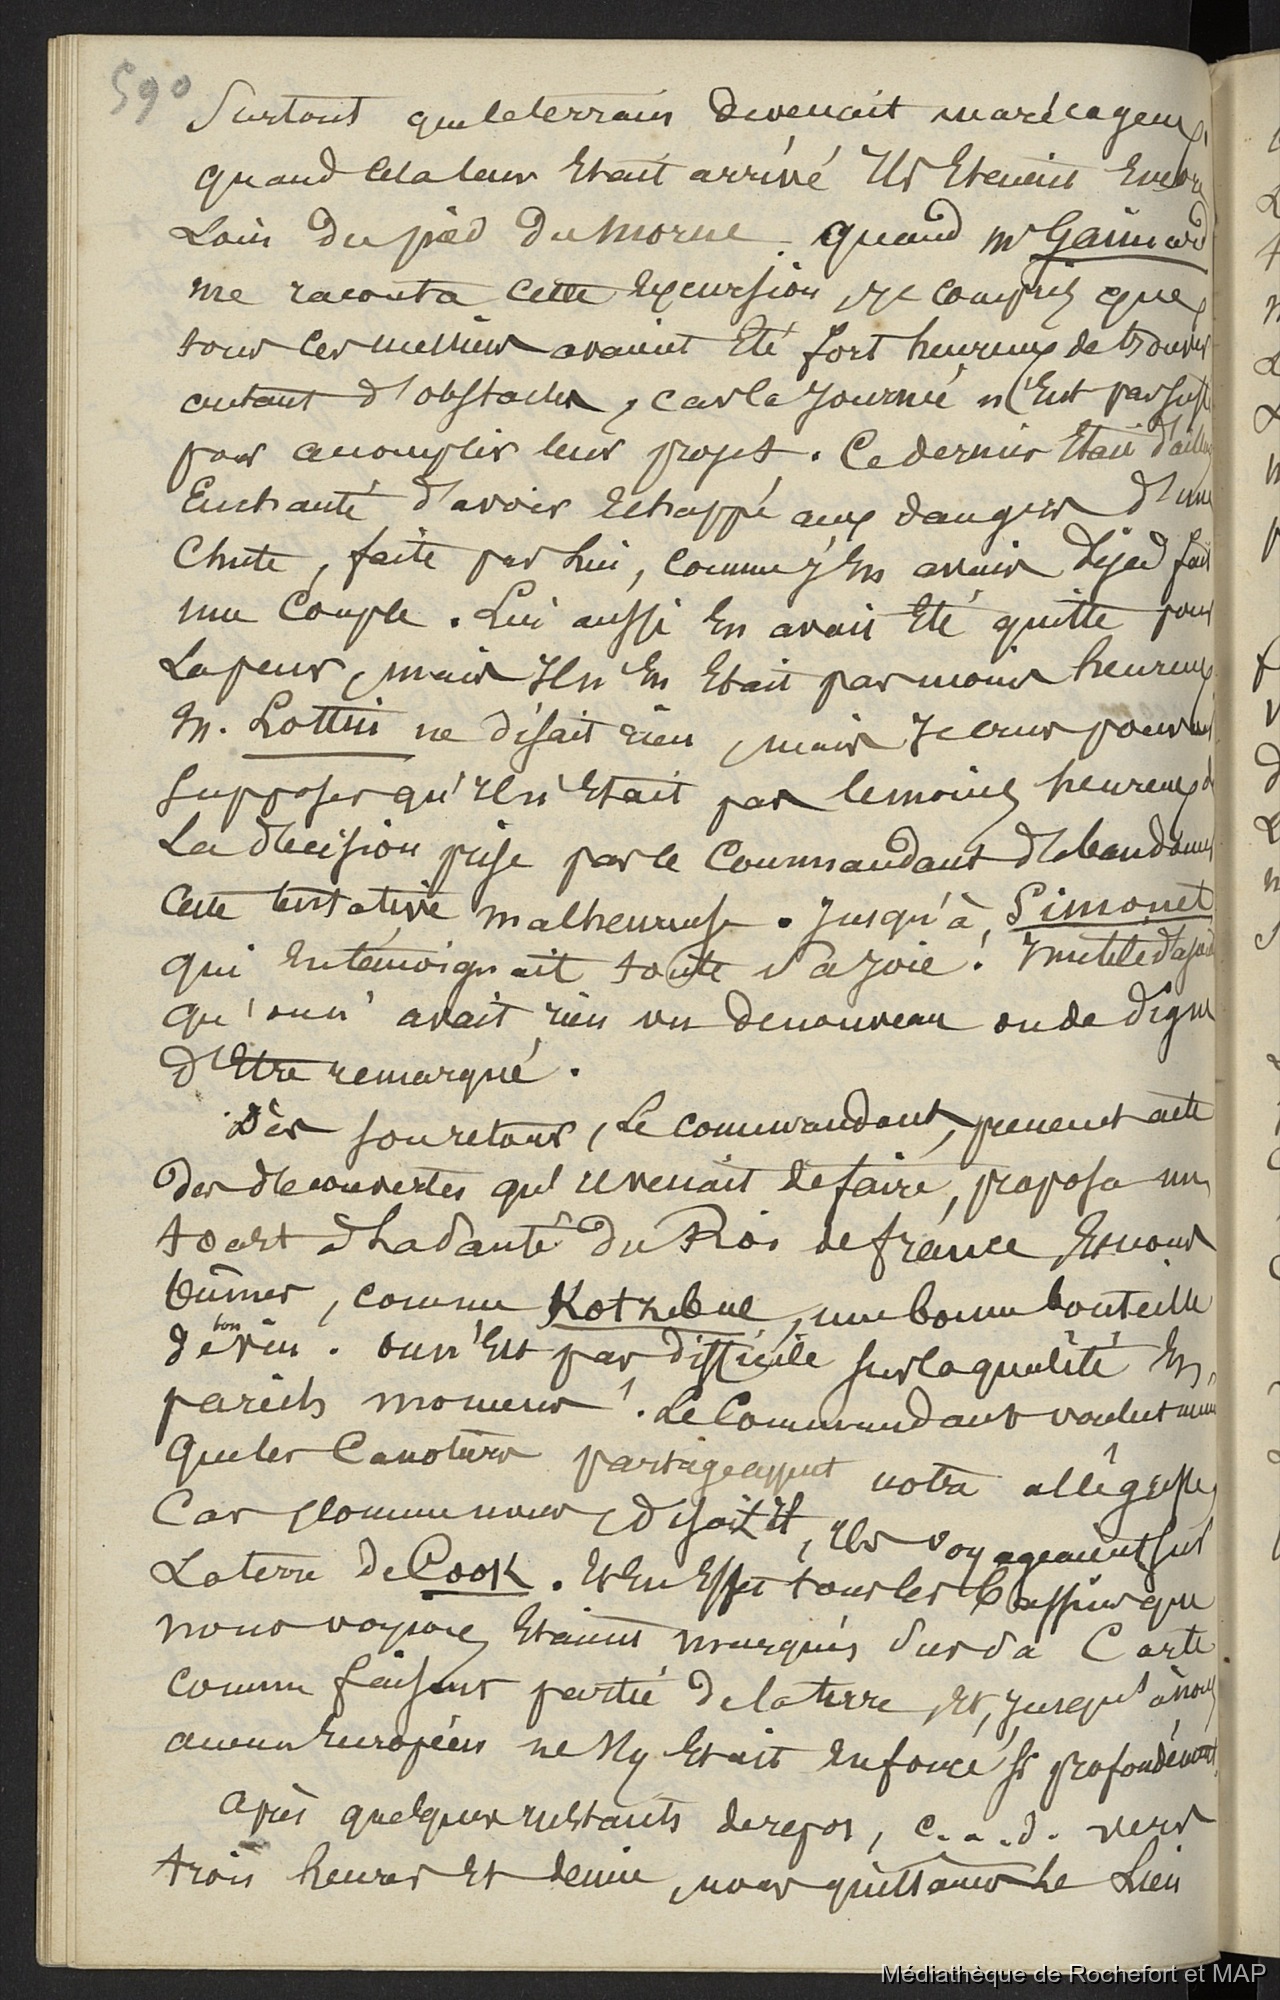 590
Surtout que le terrain devenait marécageux,
quand cela leur Etait arrivé Ils Etaient Encore
Loin du pied du morne. quand Mr Gaimard
me raconta cette Excursion, Je compris que
tous ces messieurs avaient Eté fort heureux de trouver
autant d'obstacles, car la Journée n'Eut pas suffi
pour accomplir leur projet. Ce dernier Etait d'ailleurs
Enchanté d'avoir Echappé aux dangers d'une
Chute, faite par lui, comme J'En avais déja fait
une Couple. Lui aussi En avait Eté quitte pour
La peur, mais Il n'En Etait pas moins heureux.
M. Lottin ne disait rien, mais Je crus pouvoir
supposer qu'Il n'Etait pas le moins heureux de
La décision prise par le Commandant d'abandonner
cette tentative malheureuse. Jusqu'à Simonet
qui En témoignait toute sa Joie! Inutile d'ajouter
qu'on n'avait rien vu de nouveau ou de digne
d'Etre remarqué.
Dès son retour, Le commandant, prenant acte
des découvertes qu'il venait de faire, proposa un
toast à La Santé du Roi de france Et nous
bûmes, comme Kotzebue, une bonne bouteille
de bon vin. on n'Est pas difficile sur la qualité En
pareils moments! Le Commandant voulut même
que les Canotiers partageassent notre allégresse,
Car, comme nous, disait-il, Ils voyageaient sur
La terre de Cook. Et En Effet tous les bassins que
nous voyions Etaient marqués sur sa Carte
comme faisant partie de la terre, Et, Jusqu'à nous
aucun Européen ne s'y Etait Enfoncé si profondément.
Après quelques Instants de repos, c. a. d. vers
trois heures Et demie, nous quittames Le Lieu
Médiathèque de Rochefort et MAP